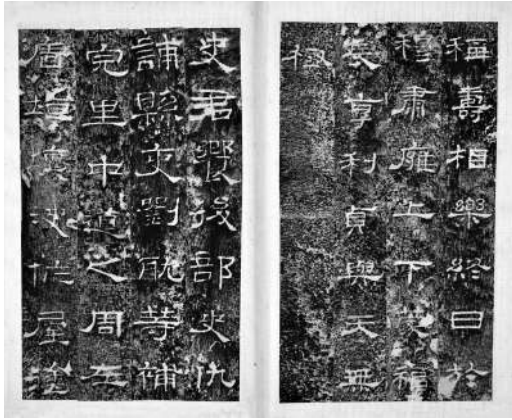 稱壽相樂終日於
穆肅廱上下蒙福
長享利貞與天無
極
史君饗後部史仇
誧縣吏劉耽等補
完里中道之周左
廧垣壞決作屋塗